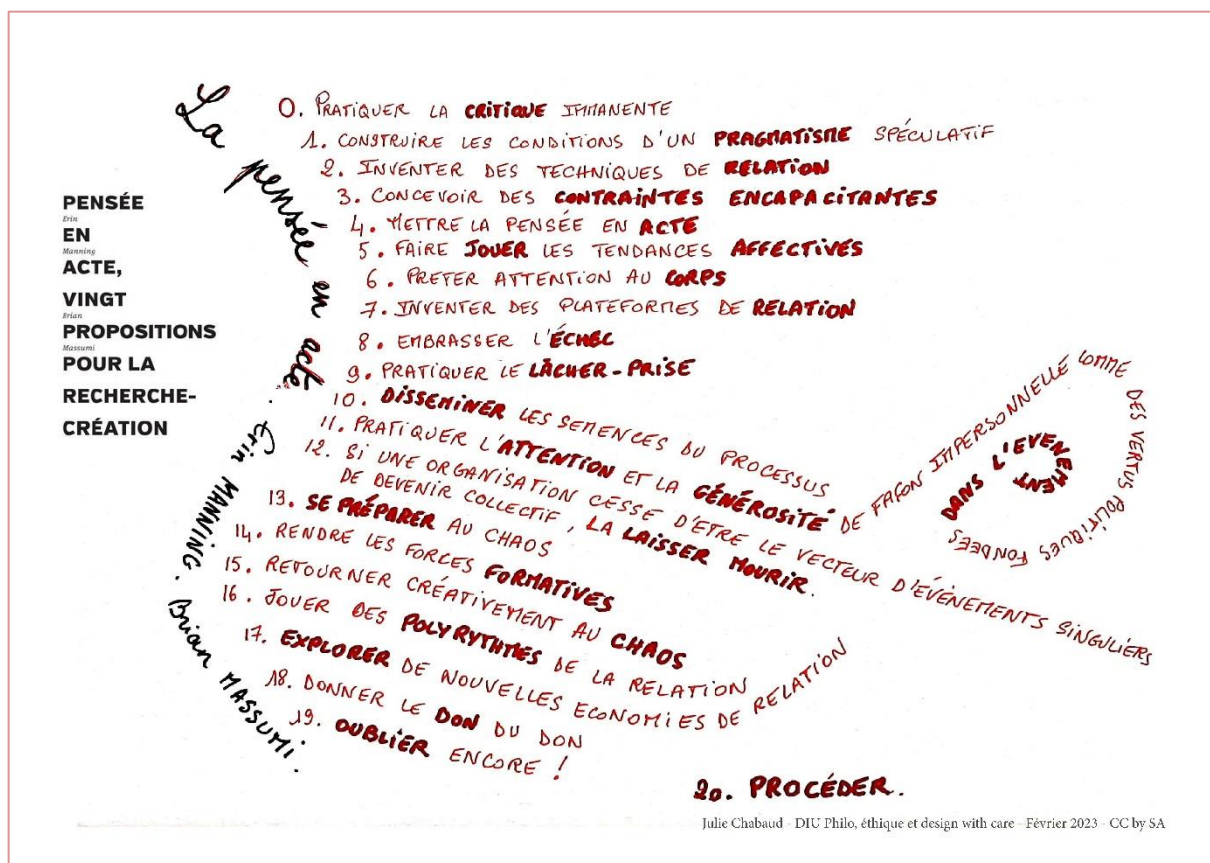 PENSÉE
Erin
EN
Manning
ACTE,
VINGT
Brian
PROPOSITIONS
Massumi
POUR LA
RECHERCHE-
CRÉATION
La pensée en acte. Erin MANNING. Brian MASSUMI.
0. PRATIQUER LA CRITIQUE IMMANENTE
1. CONSTRUIRE LES CONDITIONS D'UN PRAGMATISME SPÉCULATIF
2. INVENTER DES TECHNIQUES DE RELATION
3. CONCEVOIR DES CONTRAINTES ENCAPACITANTES
4. METTRE LA PENSÉE EN ACTE
5. FAIRE JOUER LES TENDANCES AFFECTIVES
6. PRETER ATTENTION AU CORPS
7. INVENTER DES PLATEFORMES DE RELATION
8. EMBRASSER L'ÉCHEC
9. PRATIQUER LE LÂCHER-PRISE
10. DISSEMINER LES SEMENCES DU PROCESSUS
11. PRATIQUER L'ATTENTION ET LA GÉNÉROSITÉ DE FAÇON IMPERSONNELLE COMME DES VERTUS POLITIQUES FONDEES DANS L'EVENEMENT
12. SI UNE ORGANISATION CESSE D'ETRE LE VECTEUR D'ÉVÉNEMENTS SINGULIERS
DE DEVENIR COLLECTIF, LA LAISSER MOURIR.
13. SE PRÉPARER AU CHAOS
14. RENDRE LES FORCES FORMATIVES
15. RETOURNER CRÉATIVEMENT AU CHAOS
16. JOUER DES POLYRYTHMES DE LA RELATION
17. EXPLORER DE NOUVELLES ECONOMIES DE RELATION
18. DONNER LE DON DU DON
19. OUBLIER ENCORE !
20. PROCÉDER.
Julie Chabaud - DIU Philo, éthique et design with care - Février 2023 - CC by SA